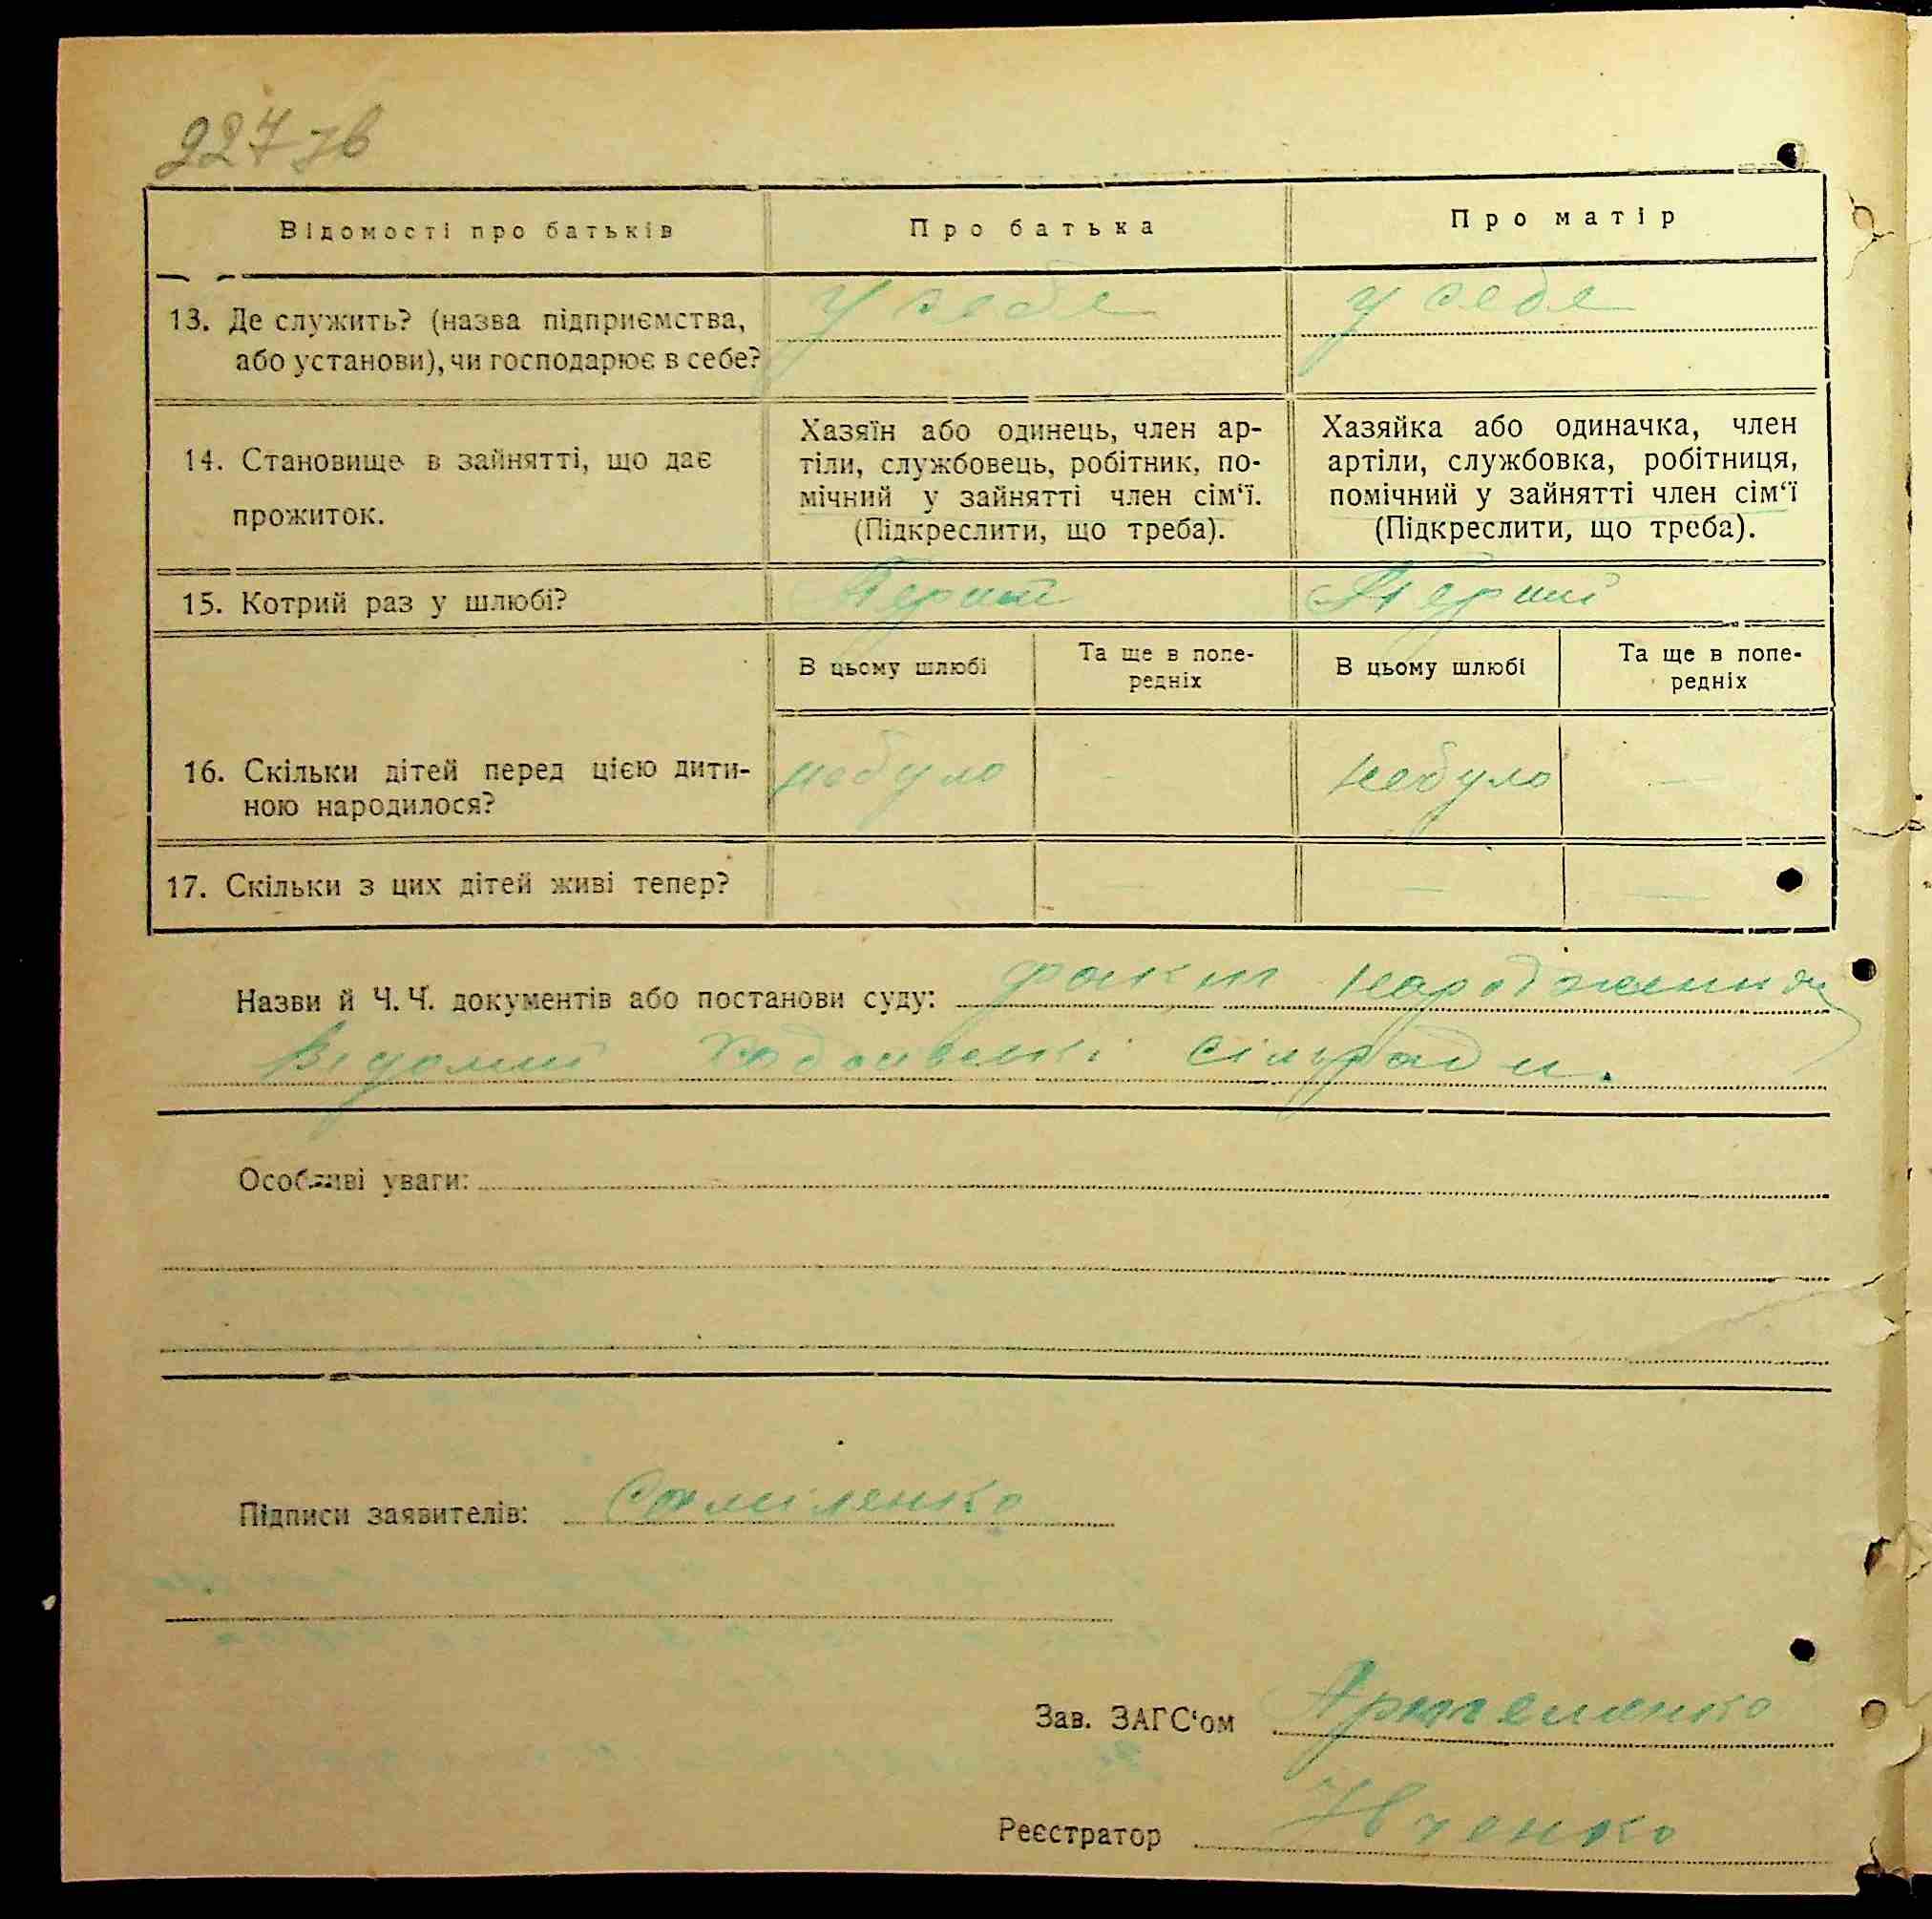 227 зв
Відомості про батьків
Про батька
Про матір
13. Де служить? (назва підприємства,
або установи), чи господарює в себе?
у себе
у себе
14. Становище в зайнятті, що дає
прожиток.
Хазяїн або одинець, член ар-
тіли, службовець, робітник, по-
мічний у зайнятті член сім‘ї.
(Підкреслити, що треба).
Хазяйка або одиначка, член
артіли, службовка, робітниця,
помічний у зайнятті член сім‘ї
(Підкреслити, що треба).
15. Котрий раз у шлюбі?
Перший
Перший
В цьому шлюбі
Та ще в попе-
редніх
В цьому шлюбі
Та ще в попе-
редніх
16. Скільки дітей перед цією дити-
ною народилося?
небуло
—
небуло
—
17. Скільки з цих дітей живі тепер?
— — — —
Назви й Ч. Ч. документів або постанови суду: факт народження
Відомий сільради.
Особливі уваги:
Підписи заявителів:
Зав. ЗАГС‘ом Артеменко
Реєстратор Ивченко